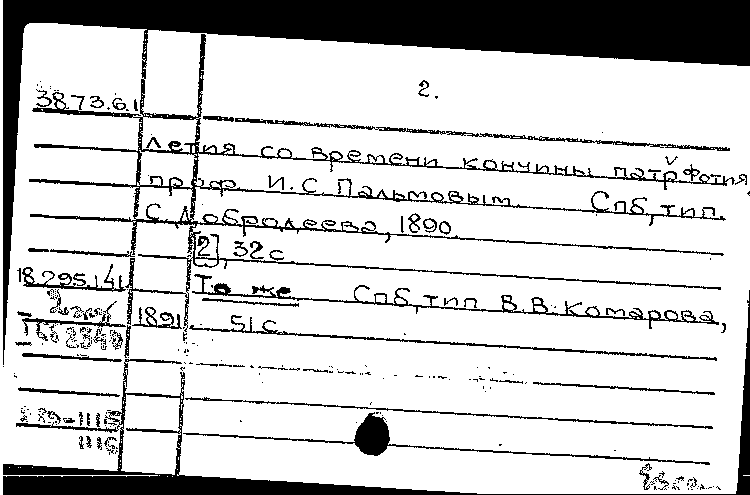 2.
38.73.6.1
летия со времени кончины патр. Фотия,
проф. И.С. Пальмовым. Спб, тип.
С. Добродеева, 1890.
[2], 32 с.
18.295.141 То же Спб, тип В.В. Комарова,
2 экз
1891. 51 с.
I 89-1115
1116